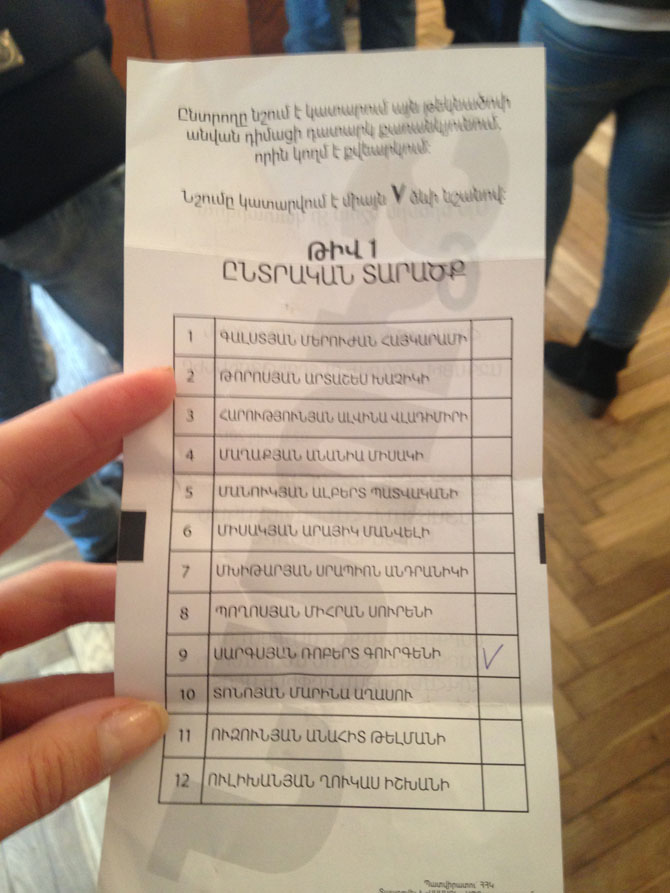 Ընտրողը նշում է կատարում այն թեկնածուի
անվան դիմացի դատարկ քառանկյունում,
որին կողմ է քվեարկում:
Նշումը կատարվում է միայն V ձևի նշանով:
ԹԻՎ 1
ԸՆՏՐԱԿԱՆ ՏԱՐԱԾՔ
1 ԳԱԼՍՏՅԱՆ ՄԵՐՈՒԺԱՆ ՀԱՅԿԱՐԱՄԻ
2 ԹՈՐՈՍՅԱՆ ԱՐՏԱՇԵՍ ԽԱՉԻԿԻ
3 ՀԱՐՈՒԹՅՈՒՆՅԱՆ ԱԼՎԻՆԱ ՎԼԱԴԻՄԻՐԻ
4 ՄԱՂԱՔՅԱՆ ԱՆԱՆԻԱ ՄԻՍԱԿԻ
5 ՄԱՆՈՒԿՅԱՆ ԱԼԲԵՐՏ ՊԱՏՎԱԿԱՆԻ
6 ՄԻՍԱԿՅԱՆ ԱՐԱՅԻԿ ՄԱՆՎԵԼԻ
7 ՄԽԻԹԱՐՅԱՆ ՍՐԱՊԻՈՆ ԱՆԴՐԱՆԻԿԻ
8 ՊՈՂՈՍՅԱՆ ՄԻՀՐԱՆ ՍՈՒՐԵՆԻ
9 ՍԱՐԳՍՅԱՆ ՌՈԲԵՐՏ ԳՈՒՐԳԵՆԻ V
10 ՏՈՆՈՅԱՆ ՄԱՐԻՆԱ ԱՂԱՍՈՒ
11 ՈՒԶՈՒՆՅԱՆ ԱՆԱՀԻՏ ԹԵԼՄԱՆԻ
12 ՈՒԼԻԽԱՆՅԱՆ ՂՈՒԿԱՍ ԻՇԽԱՆԻ
Պատվիրատու